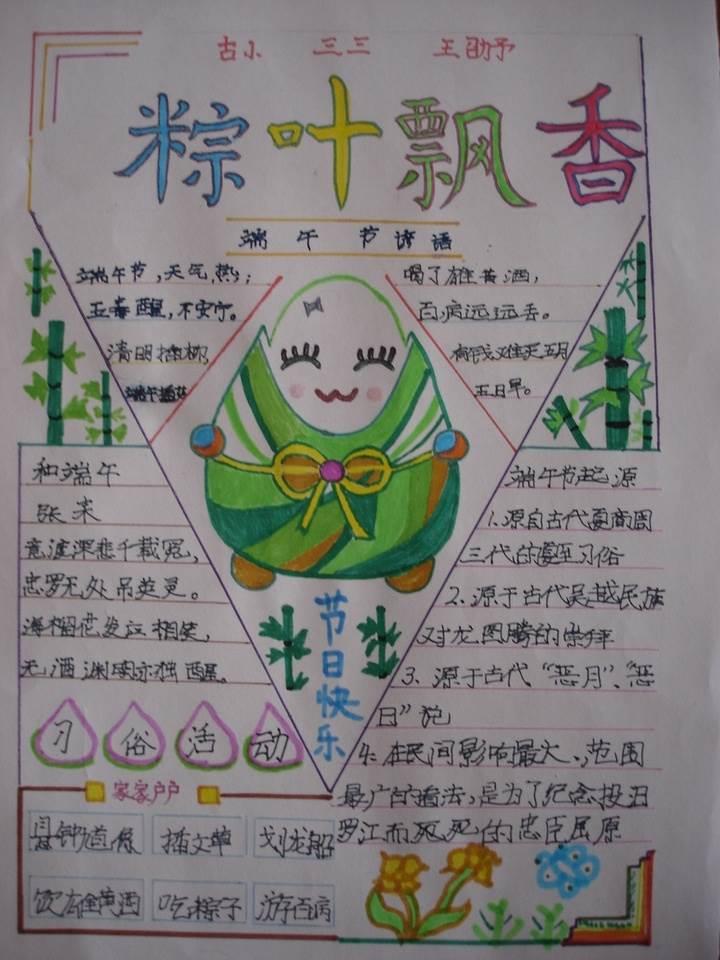 古小 三三 王劭予
粽叶飘香
端午节谚语
端午节,天气热;
五毒醒,不安宁。
清明插柳,
端午插艾
喝了雄黄酒,
百病远远丢。
有钱难买五月
五日早。
和端午
张耒
竞渡深悲千载冤,
忠罗无处吊英灵。
海榴花发江相笑,
无酒渊明亦独醒。
端午节起源
1.源自古代夏商周
三代的夏至习俗
2.源于古代吴越民族
对龙图腾的崇拜
3.源于古代“恶月”、“恶
日”说
4.在民间影响最大、范围
最广的看法,是为了纪念投汨
罗江而死的忠臣屈原
节日快乐
习俗活动
家家户户
插艾草 划龙船
饮雄黄酒 吃粽子 游百病